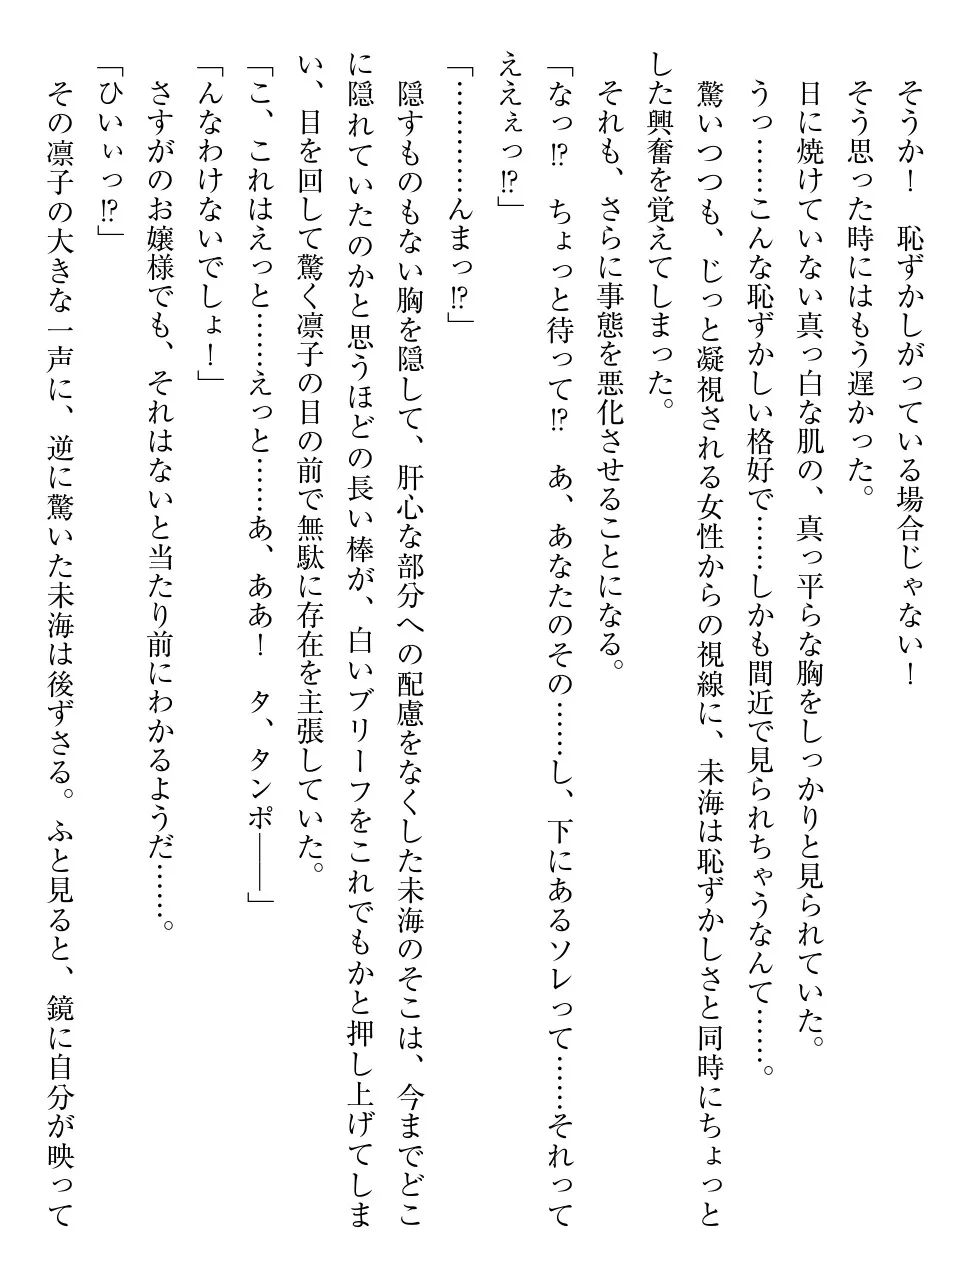 そうか！　恥ずかしがっている場合じゃない！
そう思った時にはもう遅かった。
日に焼けていない真っ白な肌の、真っ平らな胸をしっかりと見られていた。
うっ……こんな恥ずかしい格好で……しかも間近で見られちゃうなんて……。
驚いつつも、じっと凝視される女性からの視線に、未海は恥ずかしさと同時にちょっと
した興奮を覚えてしまった。
それも、さらに事態を悪化させることになる。
「なっ⁉　ちょっと待って⁉　あ、あなたのその……し、下にあるソレって……それって
ええぇっ⁉」
「…………んまっ⁉」
隠すものもない胸を隠して、肝心な部分への配慮をなくした未海のそこは、今までどこ
に隠れていたのかと思うほどの長い棒が、白いブリーフをこれでもかと押し上げてしま
い、目を回して驚く凛子の目の前で無駄に存在を主張していた。
「こ、これはえっと……えっと……あ、ああ！　タ、タンポ――」
「んなわけないでしょ！」
さすがのお嬢様でも、それはないと当たり前にわかるようだ……。
「ひいぃっ⁉」
その凛子の大きな一声に、逆に驚いた未海は後ずさる。ふと見ると、鏡に自分が映って